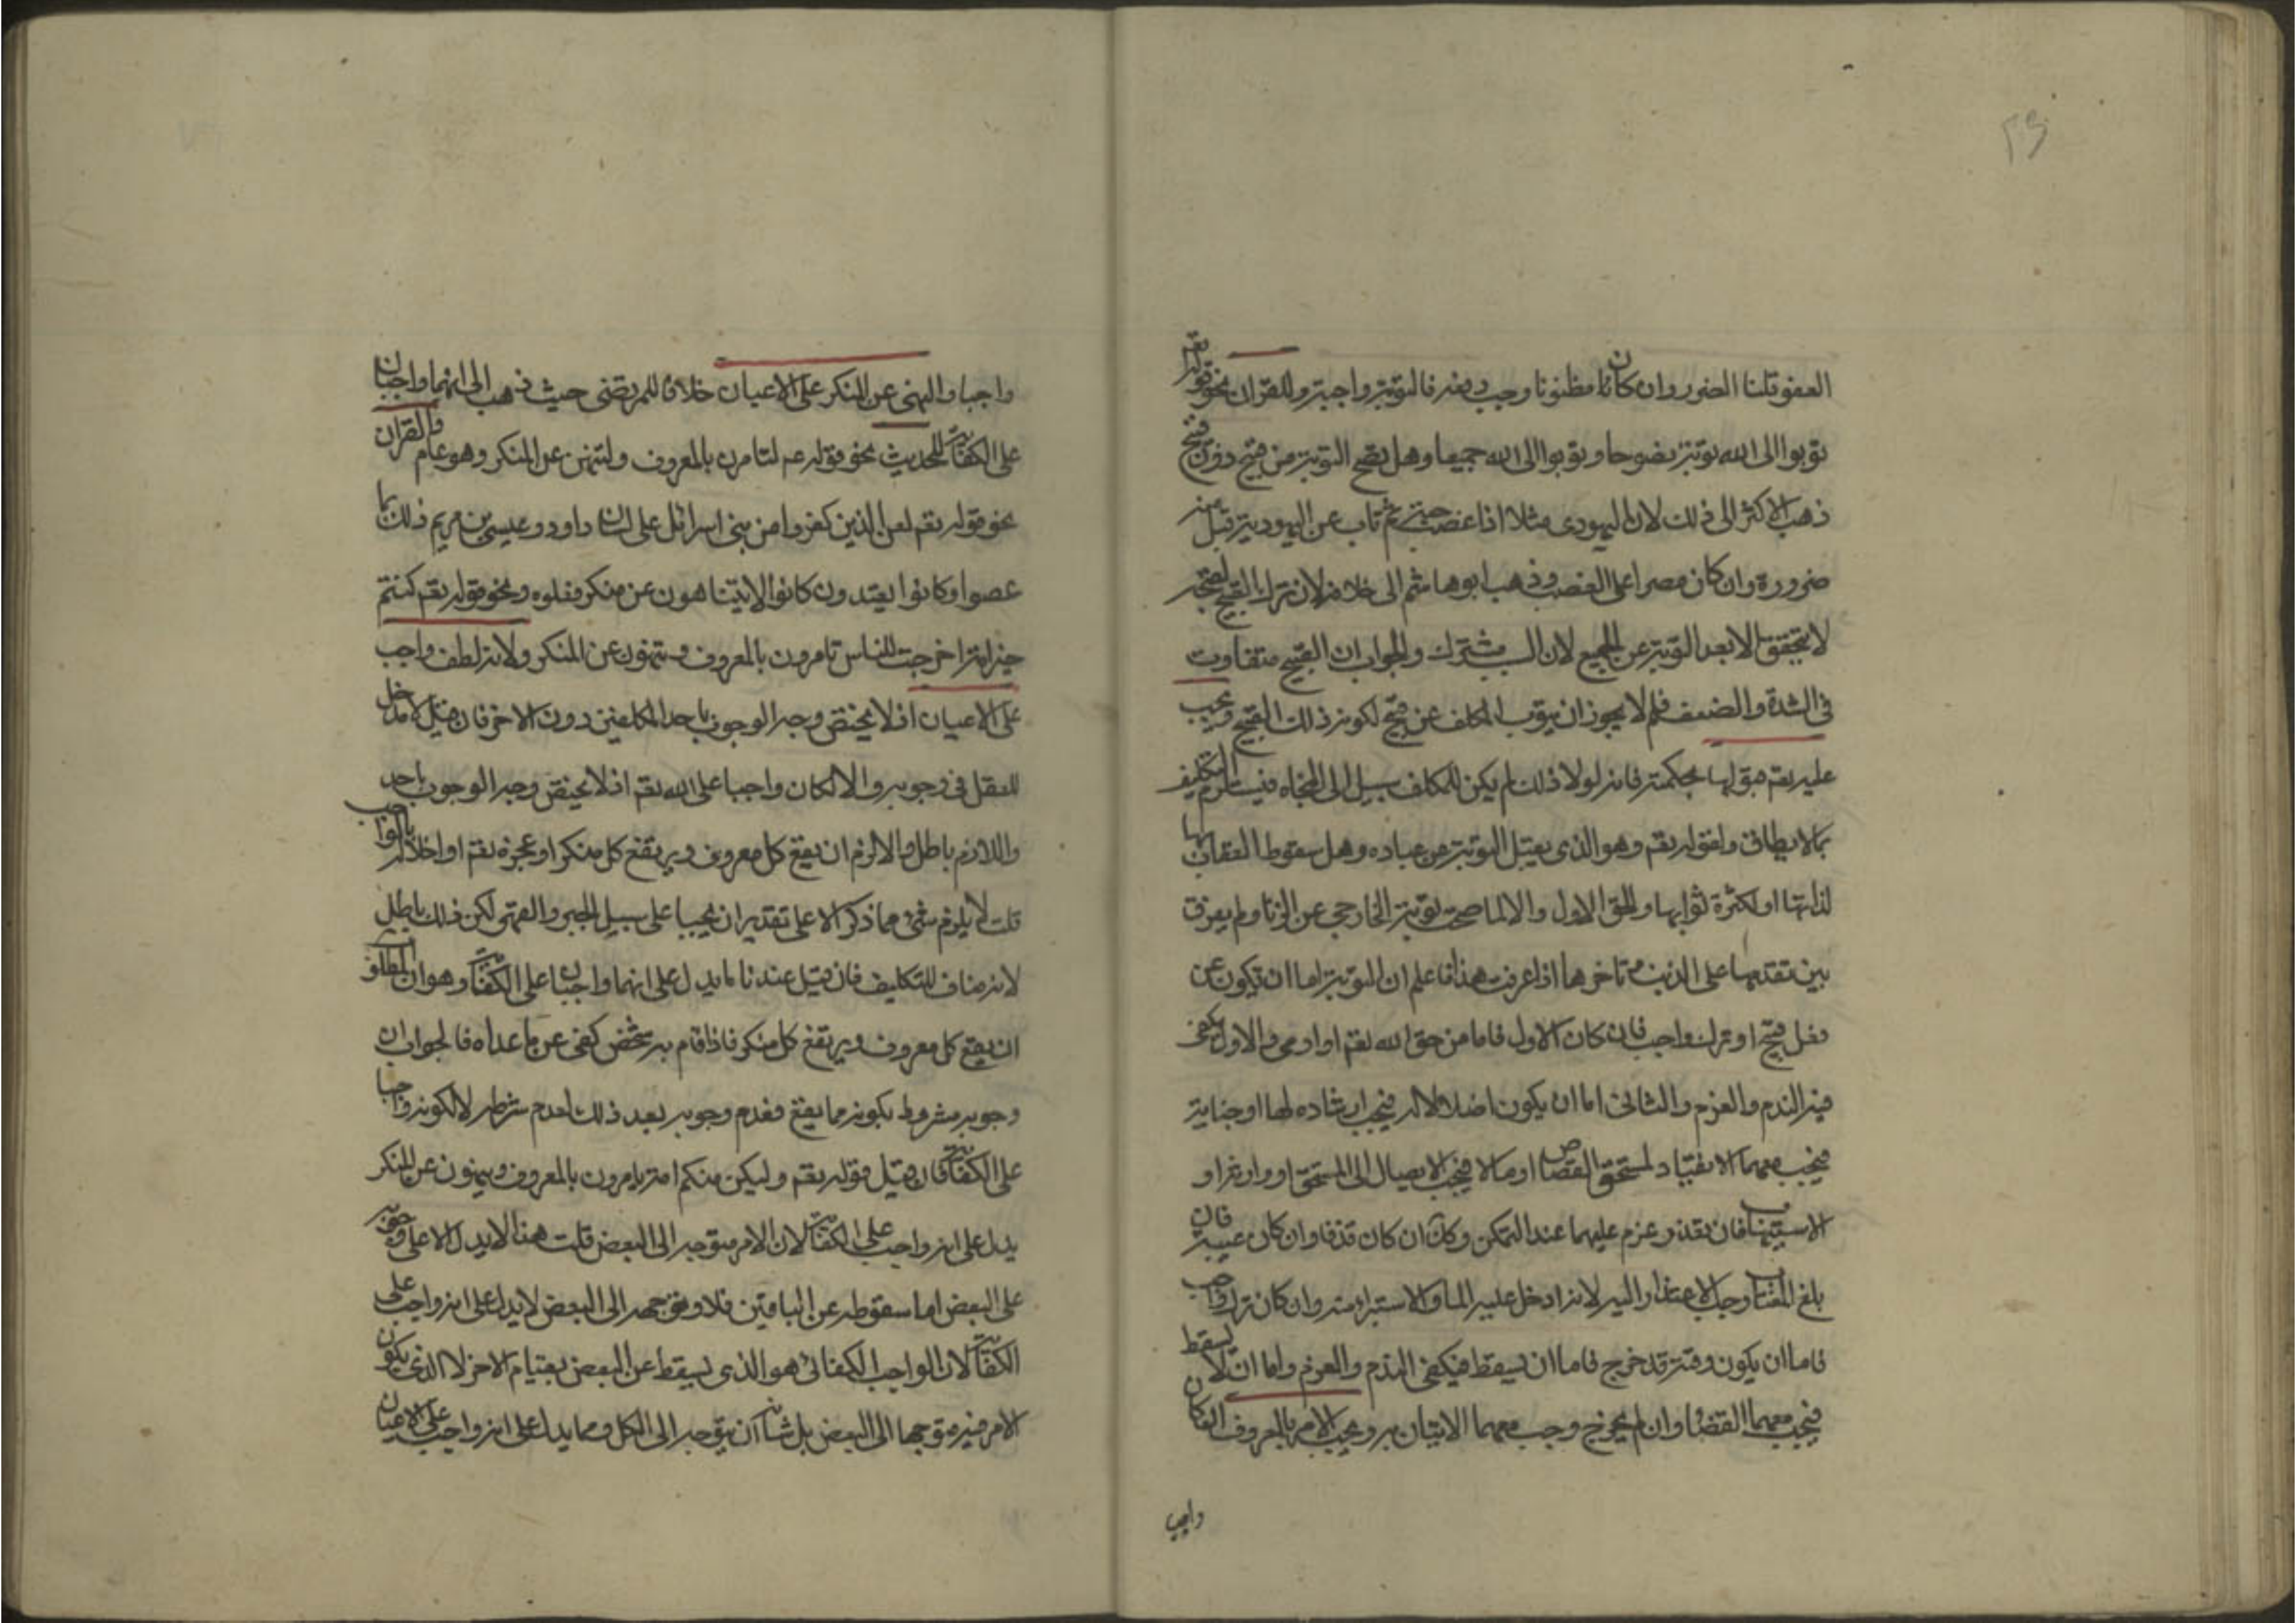 ٢٣
العفو قلنا الضرر وان كان مظنونا وجب دفعه فالتوبة واجبة وللقران نحو قوله تعم
توبوا الى الله توبة نصوحا وتوبوا الى الله جميعا وهل تصح التوبة من قبيح دون قبيح
ذهب الاكثر الى ذلك لان اليهودى مثلا اذا غصب حبة ثم تاب عن اليهودية قبل منه
ضرورة وان كان مصرا على الغصب وذهب ابو هاشم الى خلافه لان ترك القبيح لقبحه
لا يتحقق الا بعد التوبة عن الجميع لان السبب مشترك والجواب ان القبيح متفاوت
فى الشدة والضعف فلم لا يجوز ان يتوب المكلف عن قبيح لكونه ذلك القبيح ويجب
عليه تعم قبولها بحكمته فانه لولا ذلك لم يكن للمكلف سبيل الى النجاة فيستلزم التكليف
بما لا يطاق ولقوله تعم وهو الذى يقبل التوبة عن عباده وهل سقوط العقاب بها
لذاتها او لكثرة ثوابها والحق الاول والا لما صحت توبة الخارجى عن الزنا ولم يعرف
بين تقدمها على الذنب وتاخرها اذا عرفت هذا فاعلم ان التوبة اما ان تكون عن
فعل قبيح او ترك واجب فان كان الاول فاما من حق الله تعم او ادمى والاول يكفى
فيه الندم والعزم والثانى اما ان يكون اضلالا له فيجب ارشاده لها او جناية
فيجب معهما الانقياد لمستحق القصاص او مالا فيجب الايصال الى المستحق او وارثه او
الاستيهاب فان تعذر عزم عليهما عند التمكن وكك ان كان قذفا وان كان غيبة فان
بلغ المغتاب وجب الاعتذار اليه لانه ادخل عليه الما والاستبراء منه وان كان ترك واجب
فاما ان يكون وقته قد خرج فاما ان يسقط فيكفى الندم والعزم واما ان لا يسقط
فيجب معهما القضا وان لم يخرج وجب معهما الاتيان به ويجب الامر بالمعروف ان كان
واجبا
واجبا والنهى عن المنكر على الاعيان خلافا للمرتضى حيث ذهب الى انهما واجبان
على الكفاية للحديث نحو قوله عم لتامرن بالمعروف ولتنهن عن المنكر وهو عام والقران
نحو قوله تعم لعن الذين كفروا من بنى اسرائل على لسان داود وعيسى بن مريم ذلك بما
عصوا وكانوا يعتدون كانوا لا يتناهون عن منكر فعلوه ونحو قوله تعم كنتم
خير امة اخرجت للناس تامرون بالمعروف وتنهون عن المنكر ولانه لطف واجب
على الاعيان اذ لا يختص وجه الوجوب باحد المكلفين دون الاخر فان قيل لا مدخل
للعقل فى وجوبه والا لكان واجبا على الله تعم اذ لا يختص وجه الوجوب باحد
واللازم باطل والا لزم ان يقع كل معروف ويرتفع كل منكر او عجزه تعم او اخلاله بالواجب
قلت لا يلزم شئ مما ذكر الا على تقدير ان يجبا على سبيل الجبر والقهر لكن ذلك باطل
لانه مناف للتكليف فان قيل عندنا ما يدل على انهما واجبان على الكفاية وهو ان المطلوب
ان يقع كل معروف ويرتفع كل منكر فاذا قام به شخص كفى عن ما عداه فالجواب ان
وجوبه مشروط بكونه مما يقع فعدم وجوبه بعد ذلك لعدم شرطه لا لكونه واجبا
على الكفاية فان قيل قوله تعم وليكن منكم امة يامرون بالمعروف وينهون عن المنكر
يدل على انه واجب على الكفاية لان الامر متوجه الى البعض قلت هذا لا يدل الا على وجوبه
على البعض اما سقوطه عن الباقين فلا وتوجهه الى البعض لا يدل على انه واجب على
الكفاية لان الواجب الكفائى هو الذى يسقط عن البعض بقيام الاخر لا الذى يكون
الامر فيه متوجها الى البعض بل شانه ان يتوجه الى الكل ومما يدل على انه واجب على الاعيان